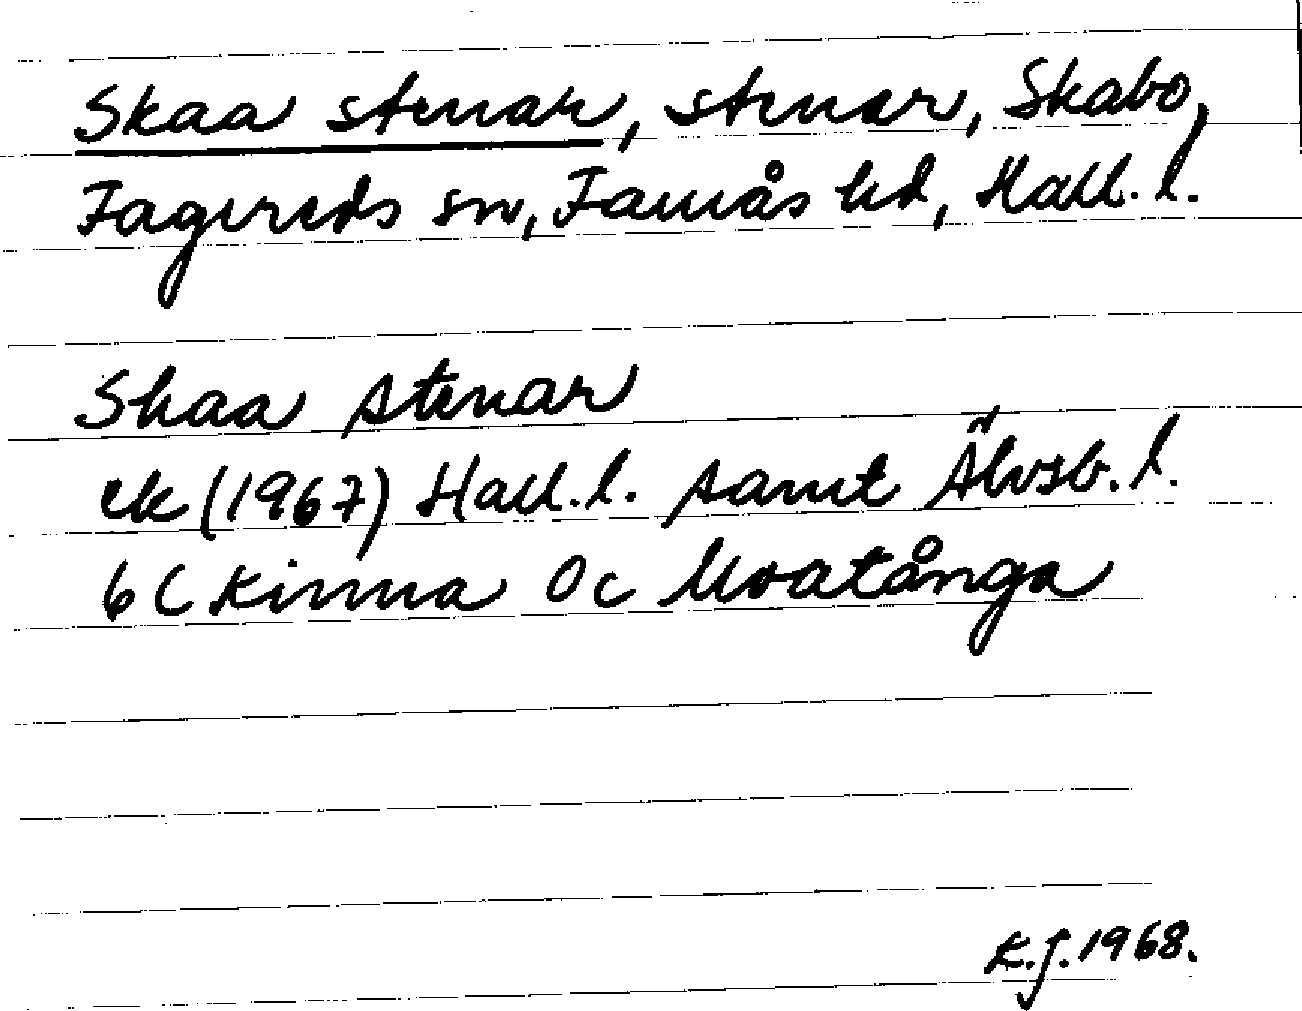 Skaa stenar, stenar, Skabo,
Fagereds sn, Faurås hd, Hall. l.
Skaa stenar
ek (1967) Hall. l. samt Älvsb. l.
6 C Kinna 0 c Moatånga
K.J. 1968.